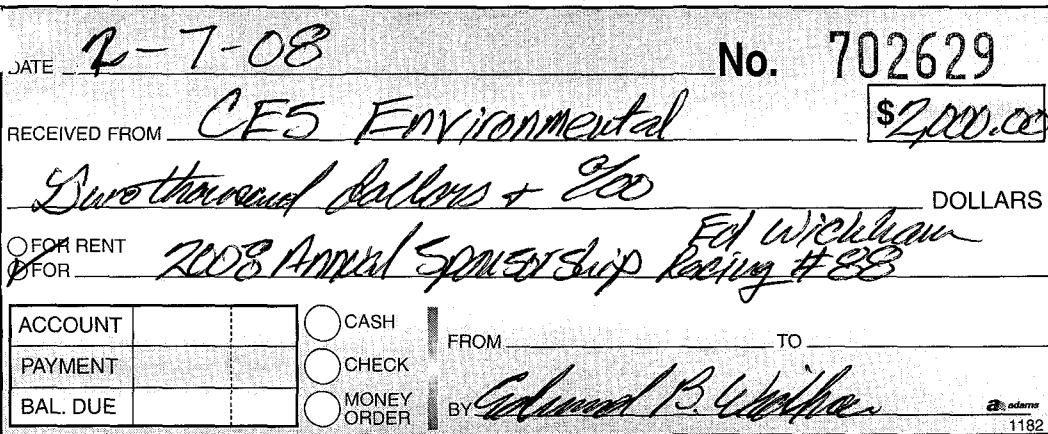 DATE 2-7-08 No. 702629
RECEIVED FROM CES Environmental $2,000.00
Two thousand dollars + 0/00 DOLLARS
FOR RENT
FOR 2008 Annual Sponsorship Ed Wickham Racing #88
ACCOUNT CASH
FROM TO
PAYMENT CHECK
BAL. DUE MONEY ORDER
BY Edmund B. Wickham
adams
1182